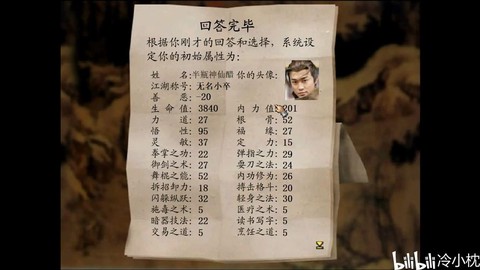 回答完毕
根据你刚才的回答和选择，系统设
定你的初始属性为：
姓 名：半瓶神仙醋 你的头像：
江湖称号：无名小卒
善 恶：-20
生 命 值：3840 内 力 值：201
力 道：27 根 骨：52
悟 性：95 福 缘：27
灵 敏：37 定 力：15
拳掌之功：22 弹指之力：29
御剑之术：27 耍刀之法：24
舞棍之能：52 内功修为：26
拆招卸力：18 搏击格斗：20
闪躲纵跃：32 轻身之法：30
施毒之术：5 医疗之术：5
暗器技法：22 读书写字：5
交易之道：5 烹饪之道：5
bilibili 冷小枕